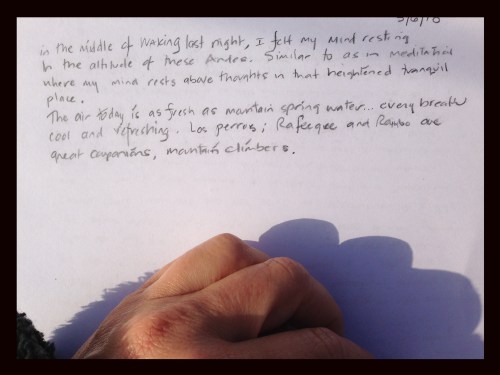 5/6/10
in the middle of waking last night, I felt my mind resting
in the altitude of these Andes. Similar to as in meditation
where my mind rests above thoughts in that heightened tranquil
place.
The air today is as fresh as mountain spring water... every breath
cool and refreshing. Los perros; Rafeequee and Rambo are
great companions, mountain climbers.